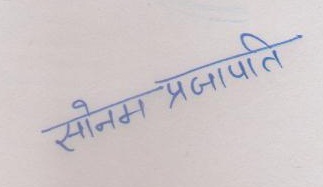 सोनम प्रजापति